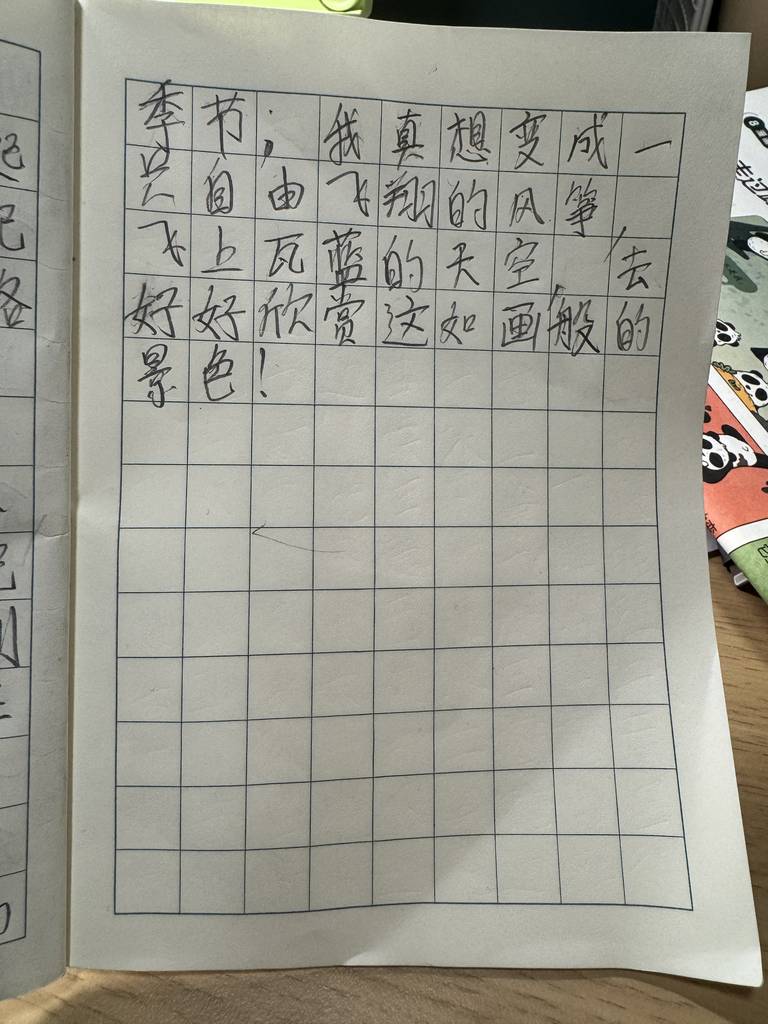 季节，我真想变成一
只自由飞翔的风筝，
飞上瓦蓝的天空，去
好好欣赏这如画般的
景色！